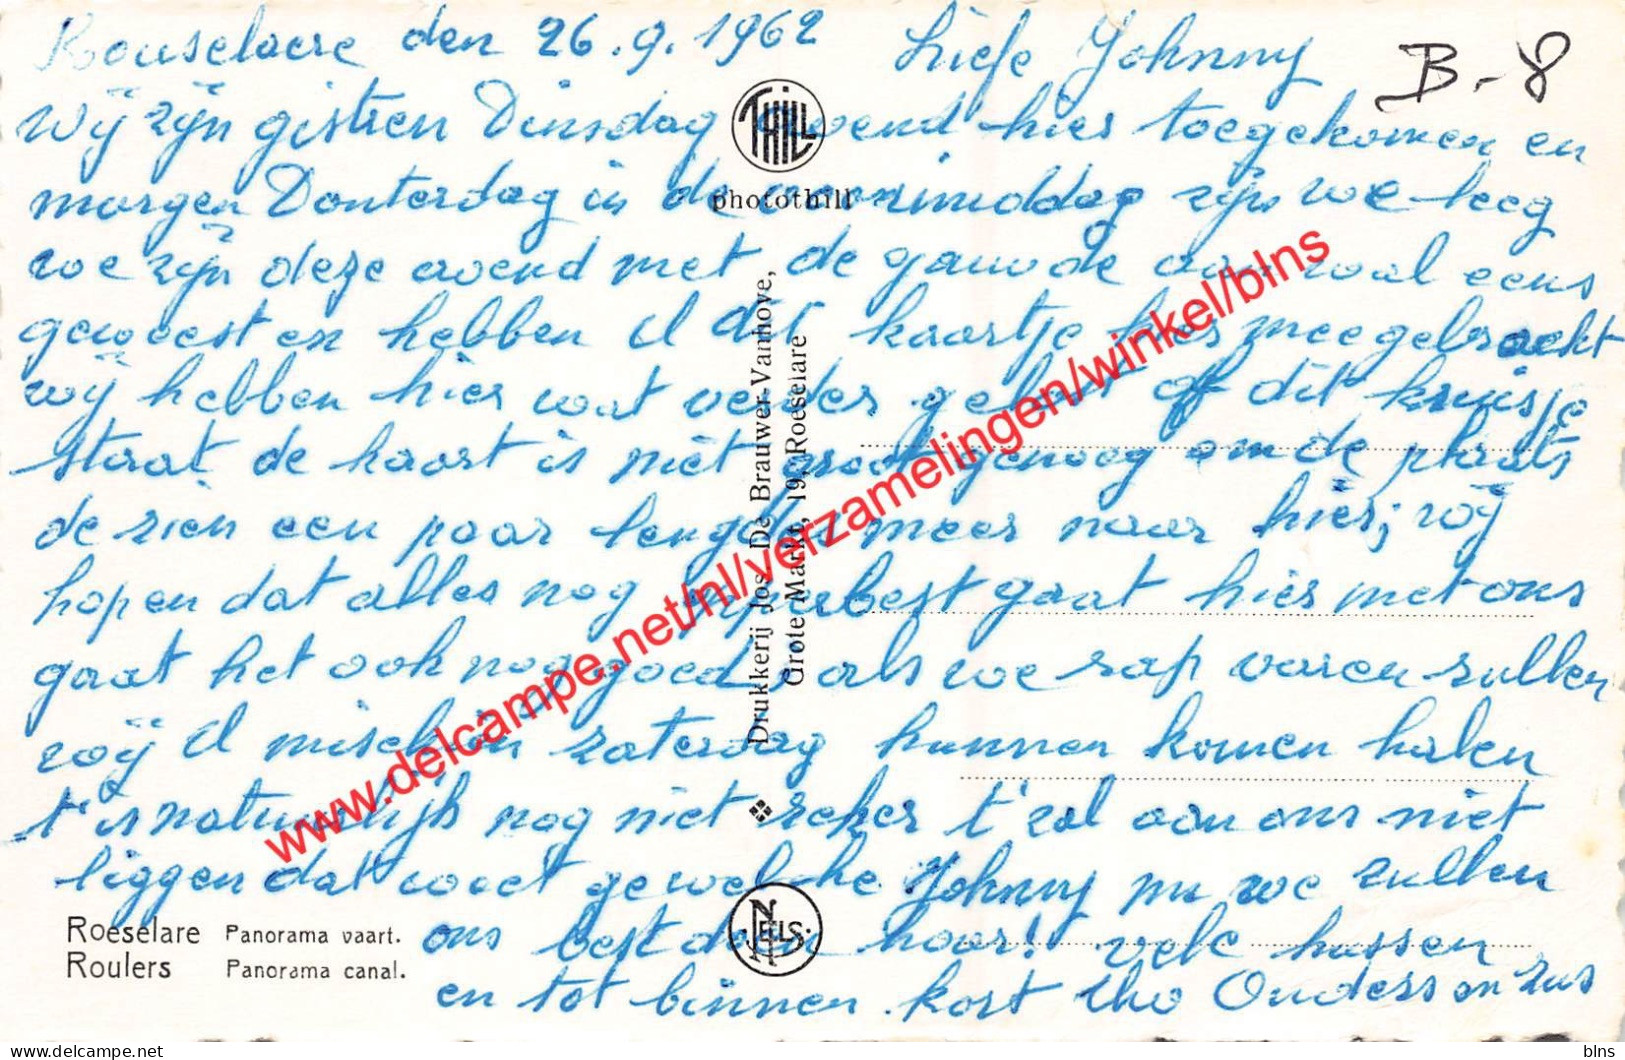 Rouselaere den 26.9.1962 Liefe Johnny
B-8
wij zijn gistren Dinsdag avend hier toegekomen en
morgen Donterdag in de voorimiddag zijn we leeg
we zijn deze avend met de gauwde aan wal eens
geweest en hebben U dit kaartje hier meegebracht
wij hebben hier wat verder gelost of dit kruisje
staat de kaart is niet groot genoeg om de plaats
de zien een paar lengden meer naar hier, wij
hopen dat alles nog opperbest gaat hier met ons
gaat het ook nog goed, als we rap varen zullen
wij U mischien zaterdag kunnen komen halen
t'is natuurlijk nog niet zeker t'zal aan ons niet
liggen dat weet ge welke Johnny nu we zullen
ons best doen hoor! vele kussen
en tot binnen kort Uw Ouders en zus
THILL
photothill
Drukkerij Jos. De Brauwer-Vanhove,
Grote Markt, 19, Roeselare
NELS
Roeselare Panorama vaart.
Roulers Panorama canal.
www.delcampe.net/nl/verzamelingen/winkel/blns
blns